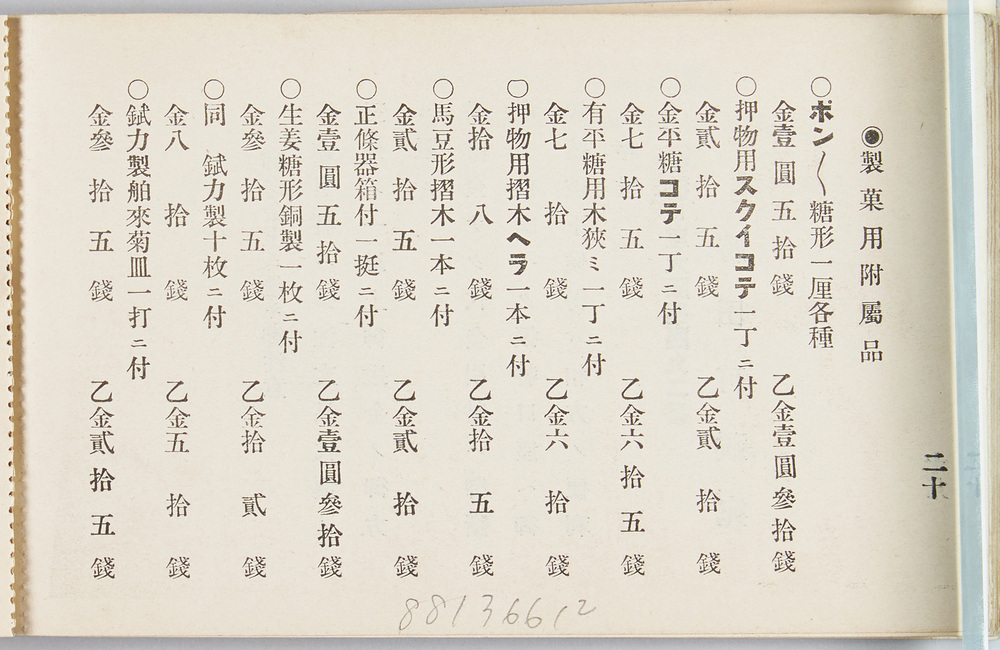 二十
◉製菓用附屬品
○ポン〱糖形一厘各種
金壹圓五拾錢　乙金壹圓參拾錢
○押物用スクイコテ一丁ニ付
金貳拾五錢　乙金貳拾錢
○金平糖コテ一丁ニ付
金七拾五錢　乙金六拾五錢
○有平糖用木狹ミ一丁ニ付
金七拾錢　乙金六拾錢
○押物用摺木ヘラ一本ニ付
金拾八錢　乙金拾五錢
○馬豆形摺木一本ニ付
金貳拾五錢　乙金貳拾錢
○正條器箱付一挺ニ付
金壹圓五拾錢　乙金壹圓參拾錢
○生姜糖形銅製一枚ニ付
金參拾五錢　乙金拾貳錢
○同　錻力製十枚ニ付
金八拾錢　乙金五拾錢
○錻力製舶來菊皿一打ニ付
金參拾五錢　乙金貳拾五錢
88136612